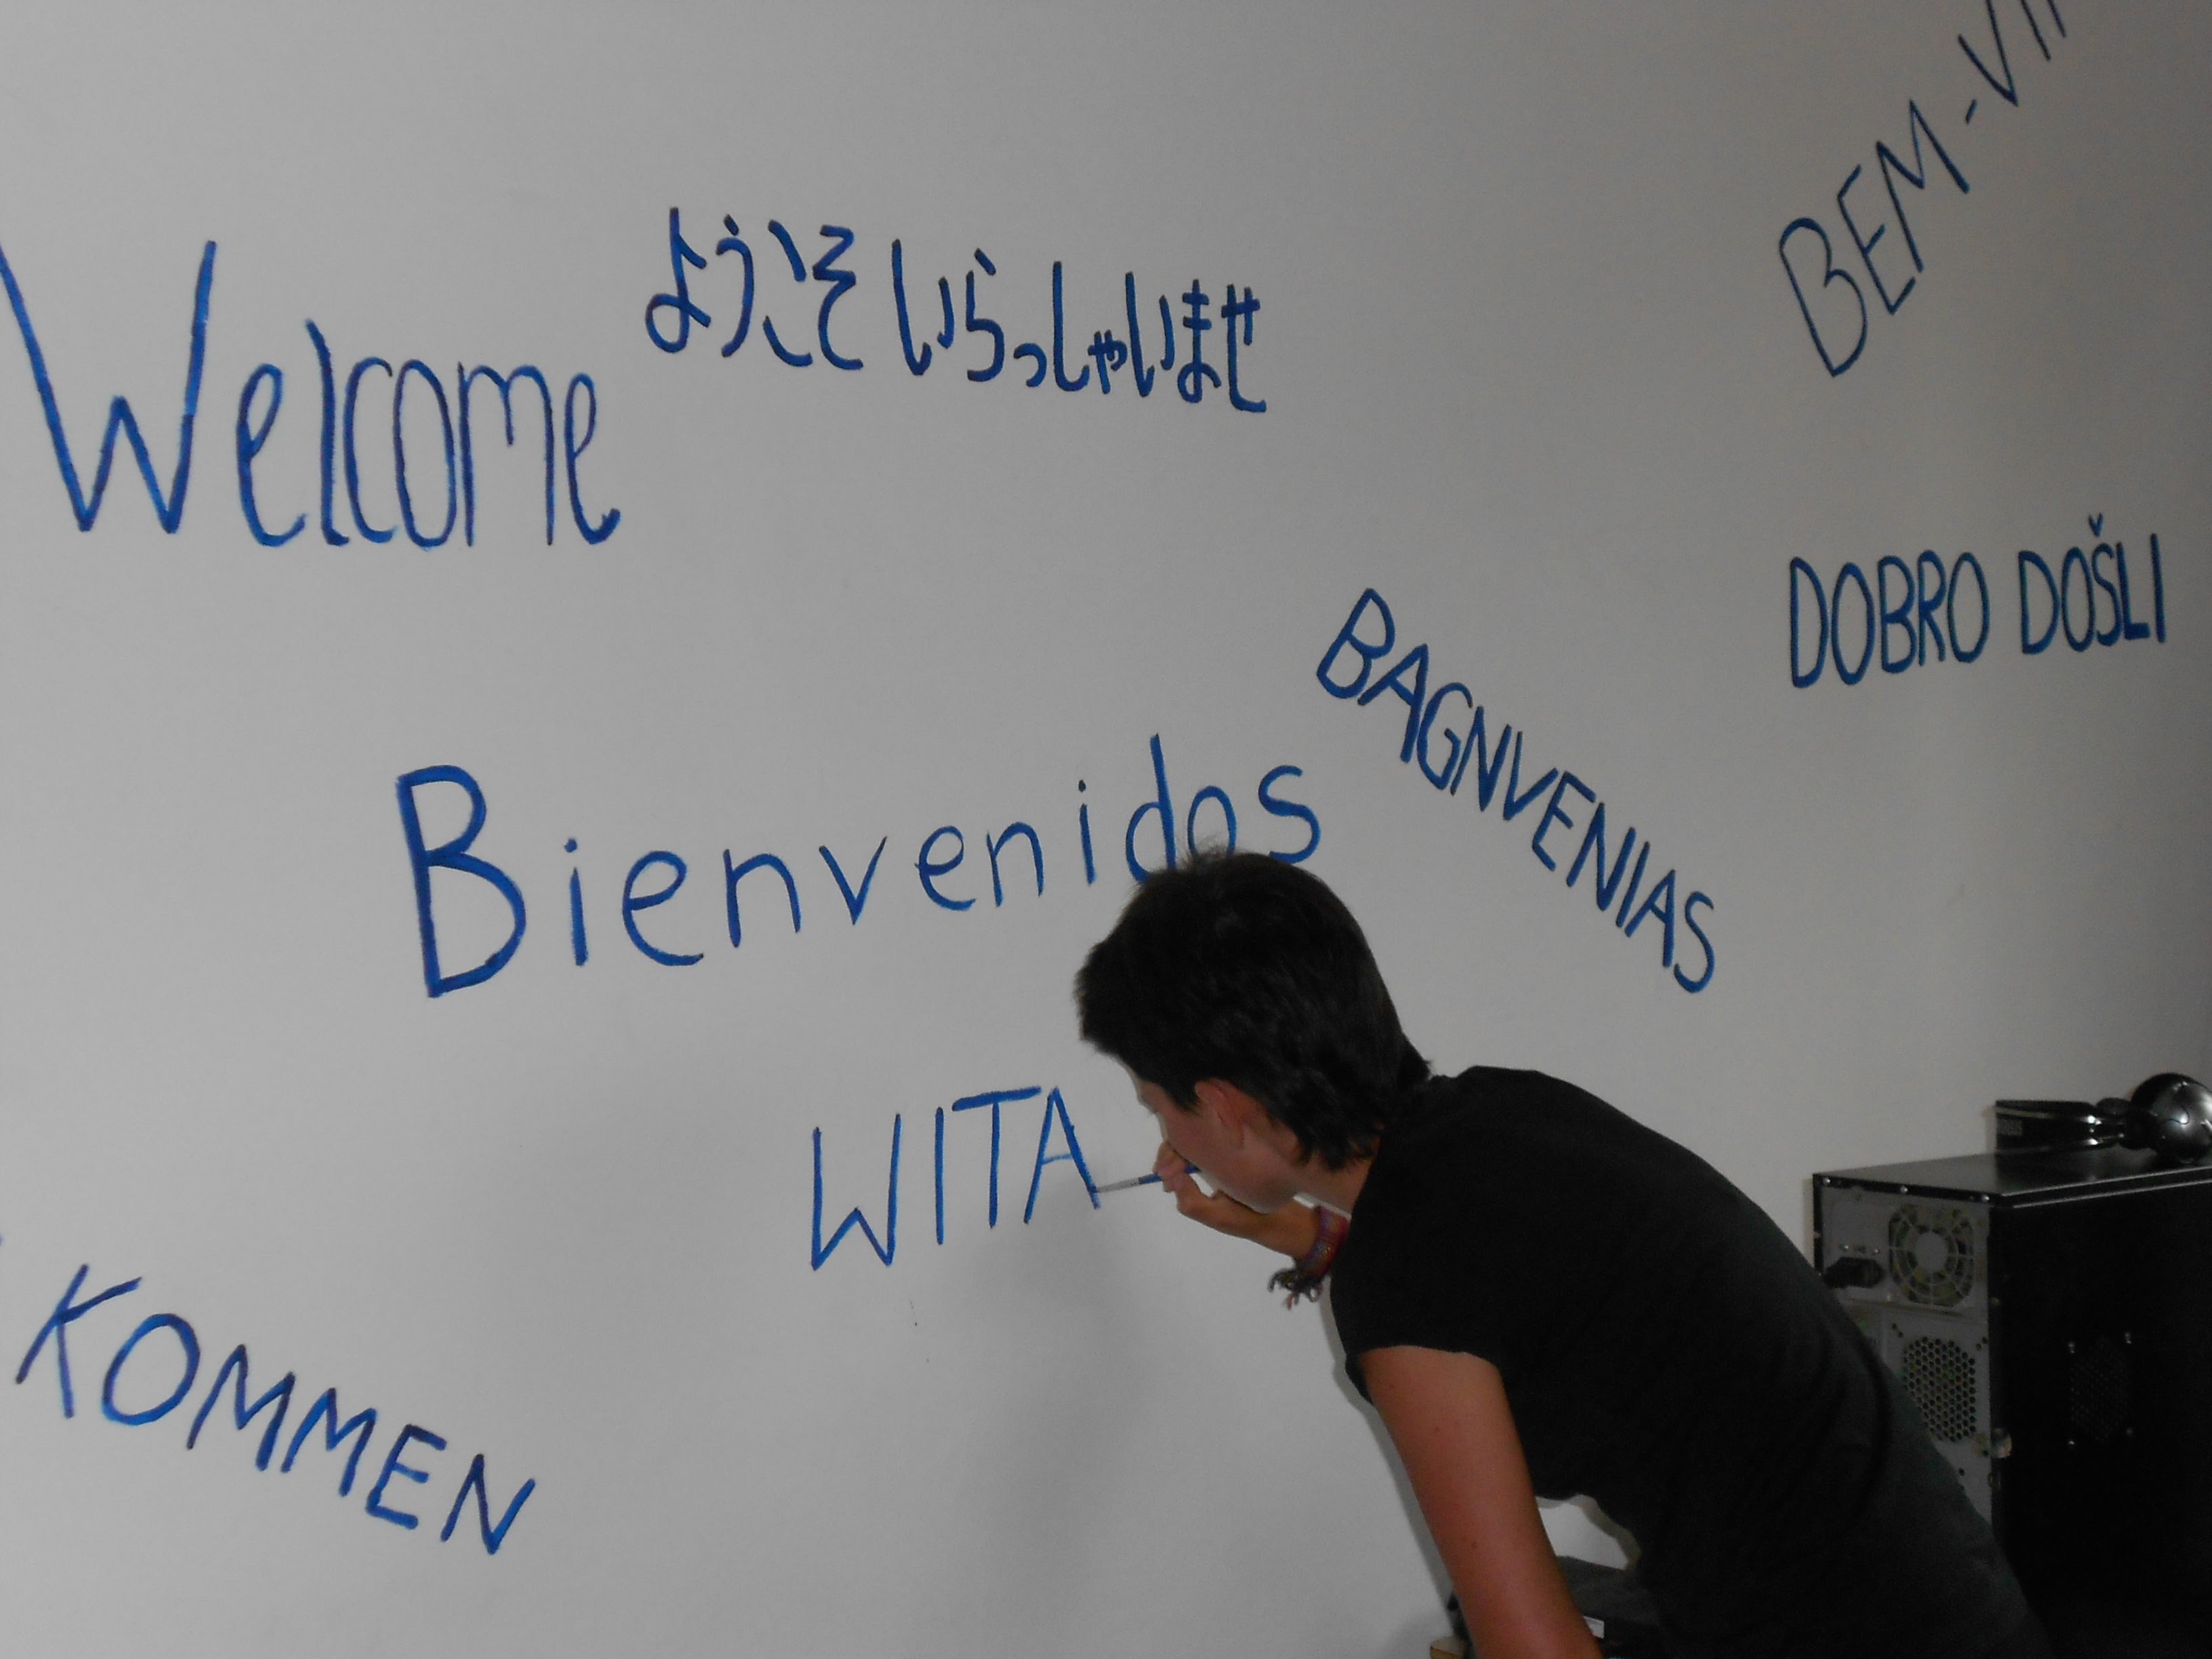 BEM-VI
ようこそ いらっしゃいませ
Welcome
DOBRO DOŠLI
BAGNVENIAS
Bienvenidos
WITA
KOMMEN